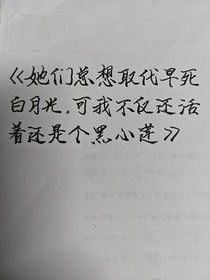 《她们总想取代早死
白月光,可我不仅还活
着还是个黑小莲》